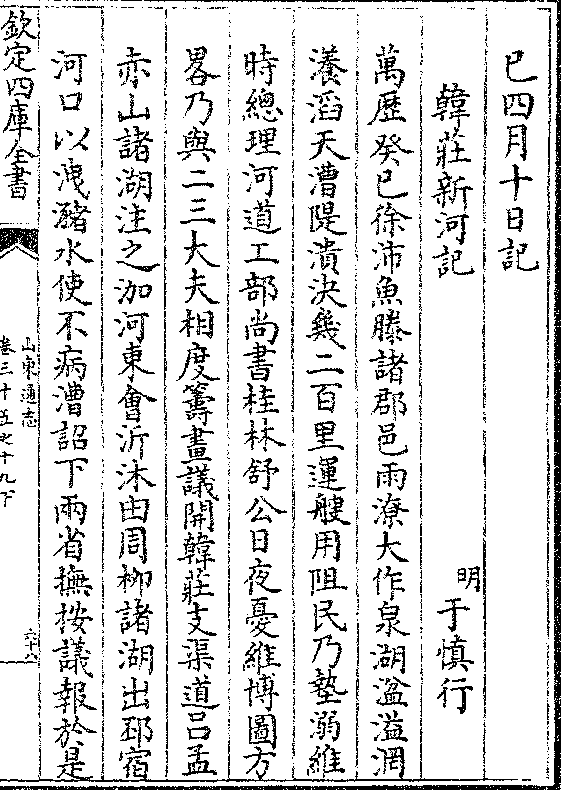 已四月十日記
韓莊新河記
明 于慎行
萬歷癸巳徐沛魚滕諸郡邑雨潦大作泉湖溢溢洞
瀁滔天漕隄潰決幾二百里運艘用阻民乃墊溺維
時總理河道工部尚書桂林舒公日夜憂維博圖方
畧乃與二三大夫相度籌畫議開韓莊支渠道吕孟
赤山諸湖注之泇河東會沂沭由周柳諸湖出邳宿
河口以洩瀦水使不病漕詔下兩省撫按議報於是
欽定四庫全書
山東通志
卷三十五之十九下
六十六